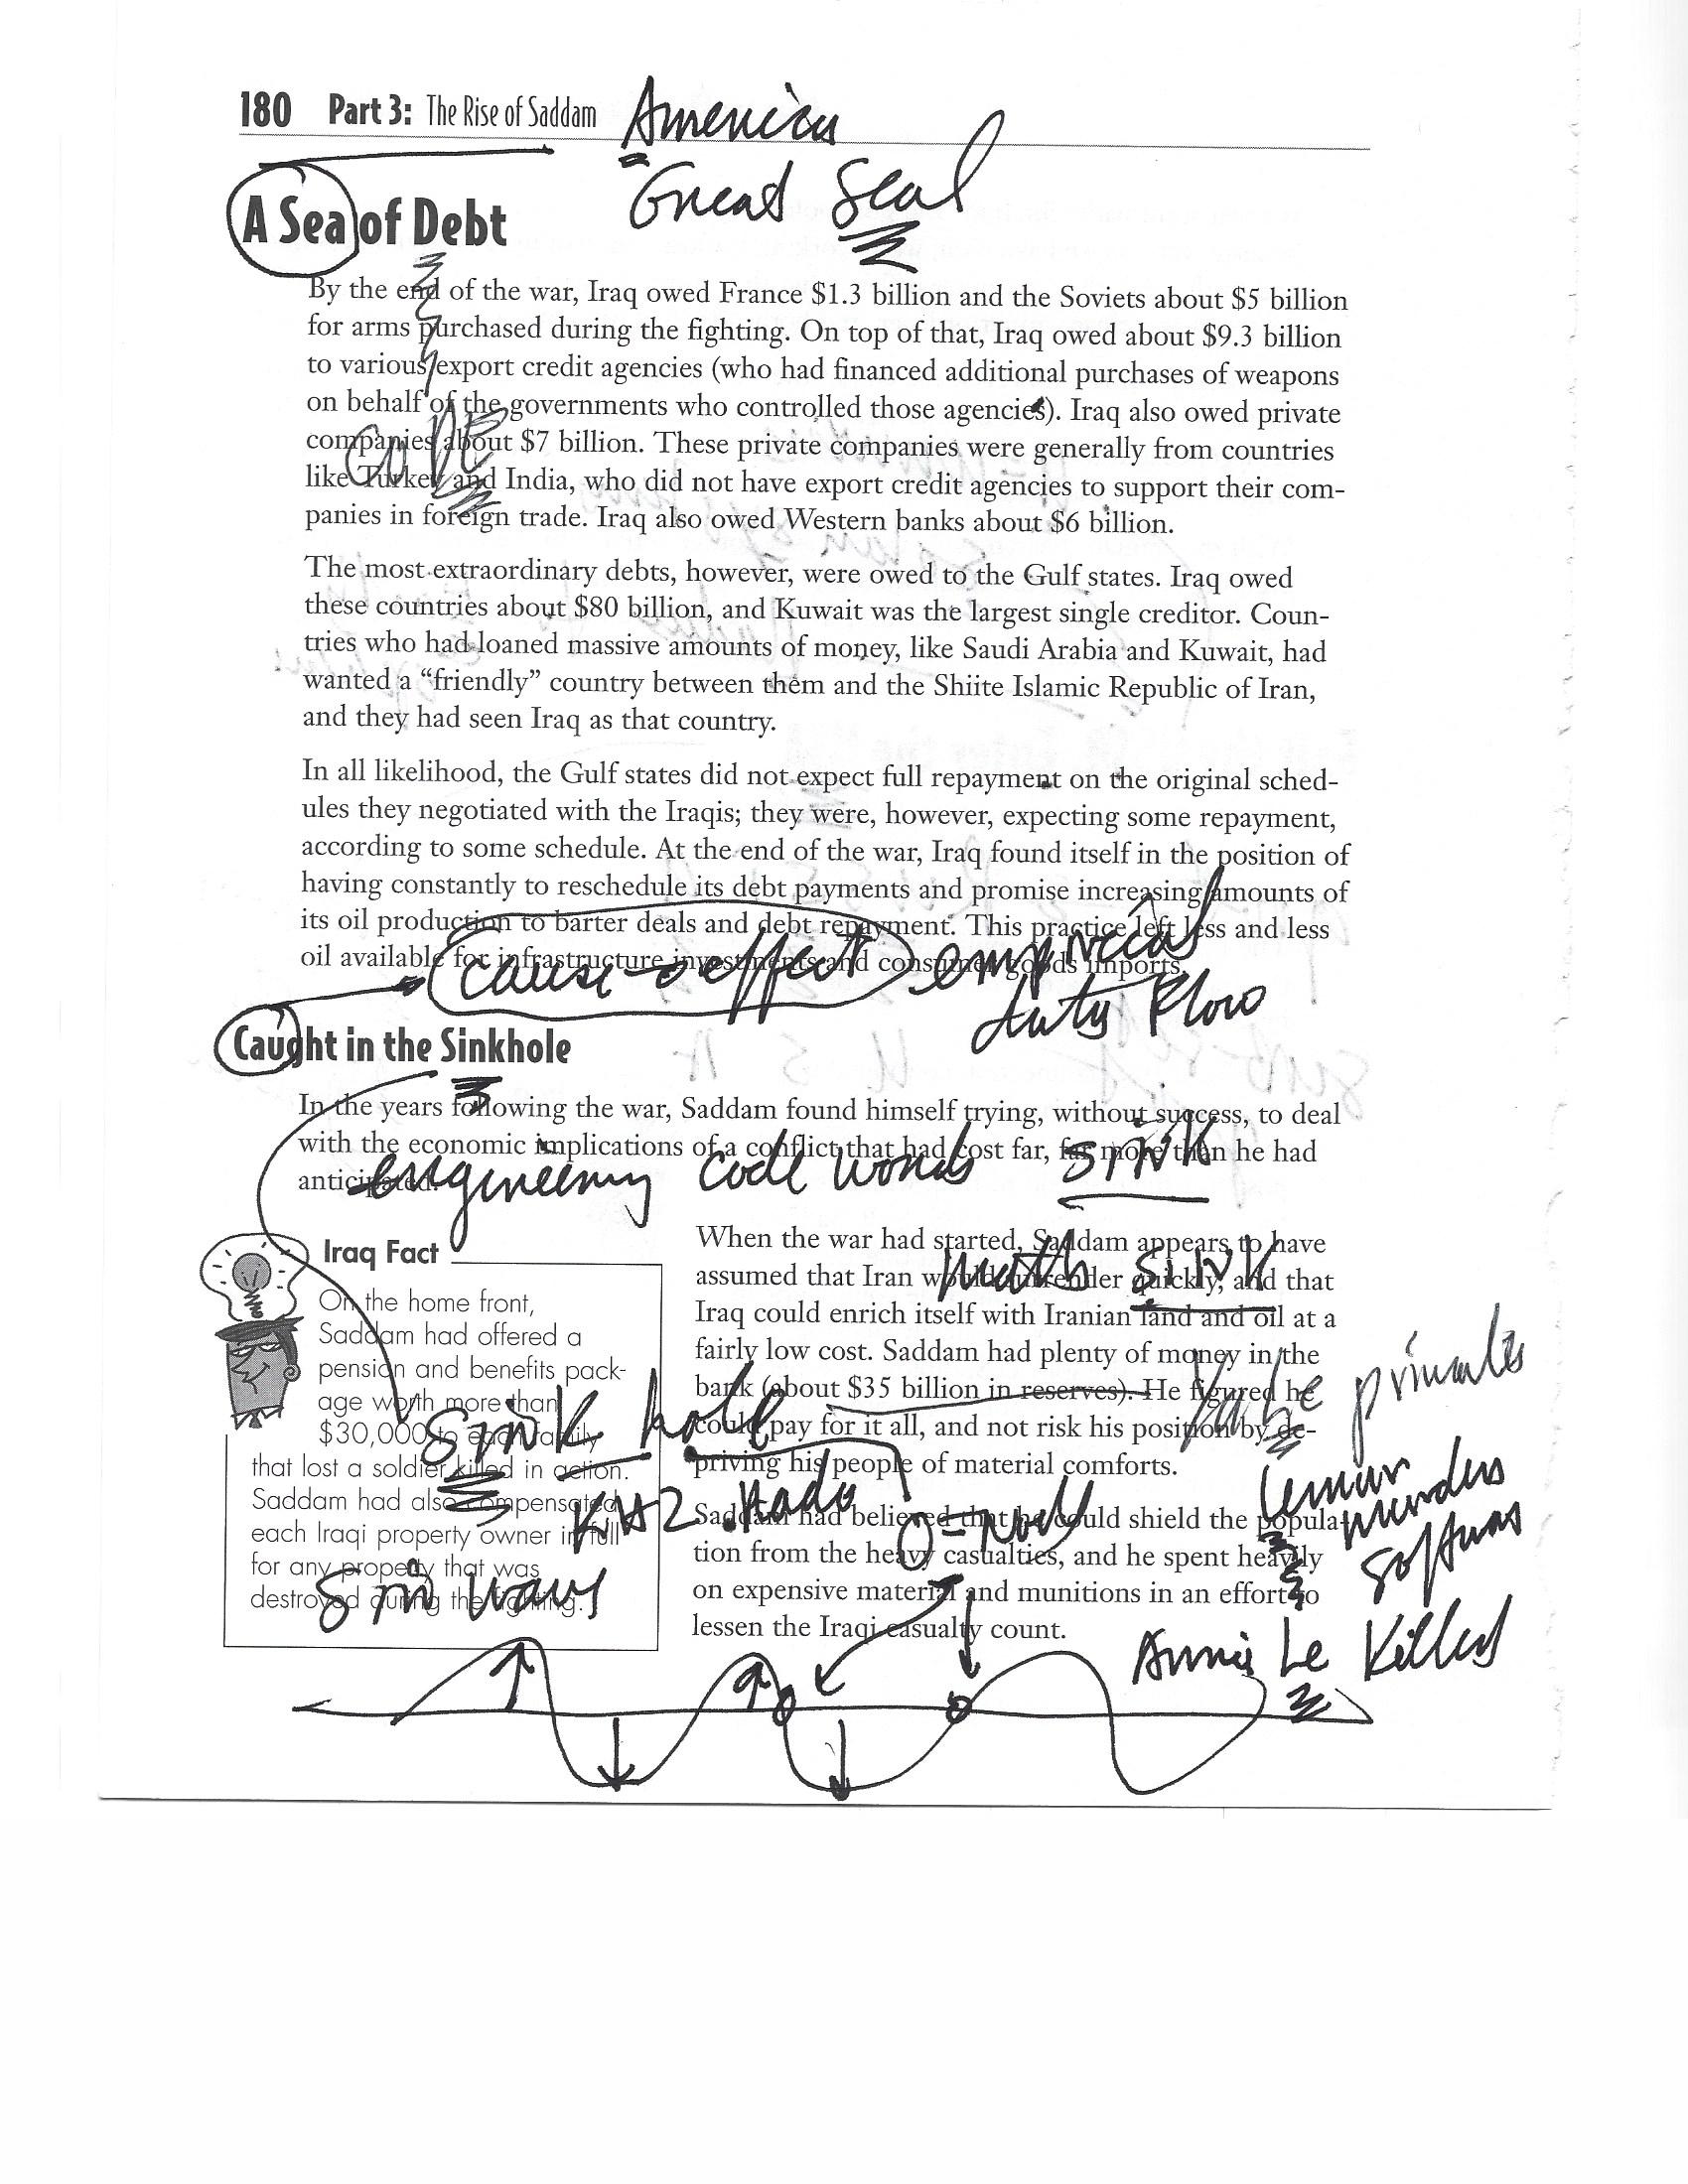 180 Part 3: The Rise of Saddam
America
Great Seal
A Sea of Debt
By the end of the war, Iraq owed France $1.3 billion and the Soviets about $5 billion
for arms purchased during the fighting. On top of that, Iraq owed about $9.3 billion
to various export credit agencies (who had financed additional purchases of weapons
on behalf of the governments who controlled those agencies). Iraq also owed private
companies about $7 billion. These private companies were generally from countries
like Turkey and India, who did not have export credit agencies to support their com-
panies in foreign trade. Iraq also owed Western banks about $6 billion.
The most extraordinary debts, however, were owed to the Gulf states. Iraq owed
these countries about $80 billion, and Kuwait was the largest single creditor. Coun-
tries who had loaned massive amounts of money, like Saudi Arabia and Kuwait, had
wanted a “friendly” country between them and the Shiite Islamic Republic of Iran,
and they had seen Iraq as that country.
In all likelihood, the Gulf states did not expect full repayment on the original sched-
ules they negotiated with the Iraqis; they were, however, expecting some repayment,
according to some schedule. At the end of the war, Iraq found itself in the position of
having constantly to reschedule its debt payments and promise increasing amounts of
its oil production to barter deals and debt repayment. This practice left less and less
oil available for infrastructure investments and consumer goods imports.
cause-effect empirical
duty Flow
Caught in the Sinkhole
In the years following the war, Saddam found himself trying, without success, to deal
with the economic implications of a conflict that had cost far, far more than he had
anticipated.
engineering code words sink
math sink
Iraq Fact
On the home front,
Saddam had offered a
pension and benefits pack-
age worth more than
$30,000 to each family
that lost a soldier killed in action.
Saddam had also compensated
each Iraqi property owner in full
for any property that was
destroyed during the fighting.
sink hole
sin wavs
When the war had started, Saddam appears to have
assumed that Iran would surrender quickly, and that
Iraq could enrich itself with Iranian land and oil at a
fairly low cost. Saddam had plenty of money in the
bank (about $35 billion in reserves). He figured he
could pay for it all, and not risk his position by de-
priving his people of material comforts.
Saddam had believed that he could shield the popula-
tion from the heavy casualties, and he spent heavily
on expensive material and munitions in an effort to
lessen the Iraqi casualty count.
primates
lemur
murders
Annie Le Killed